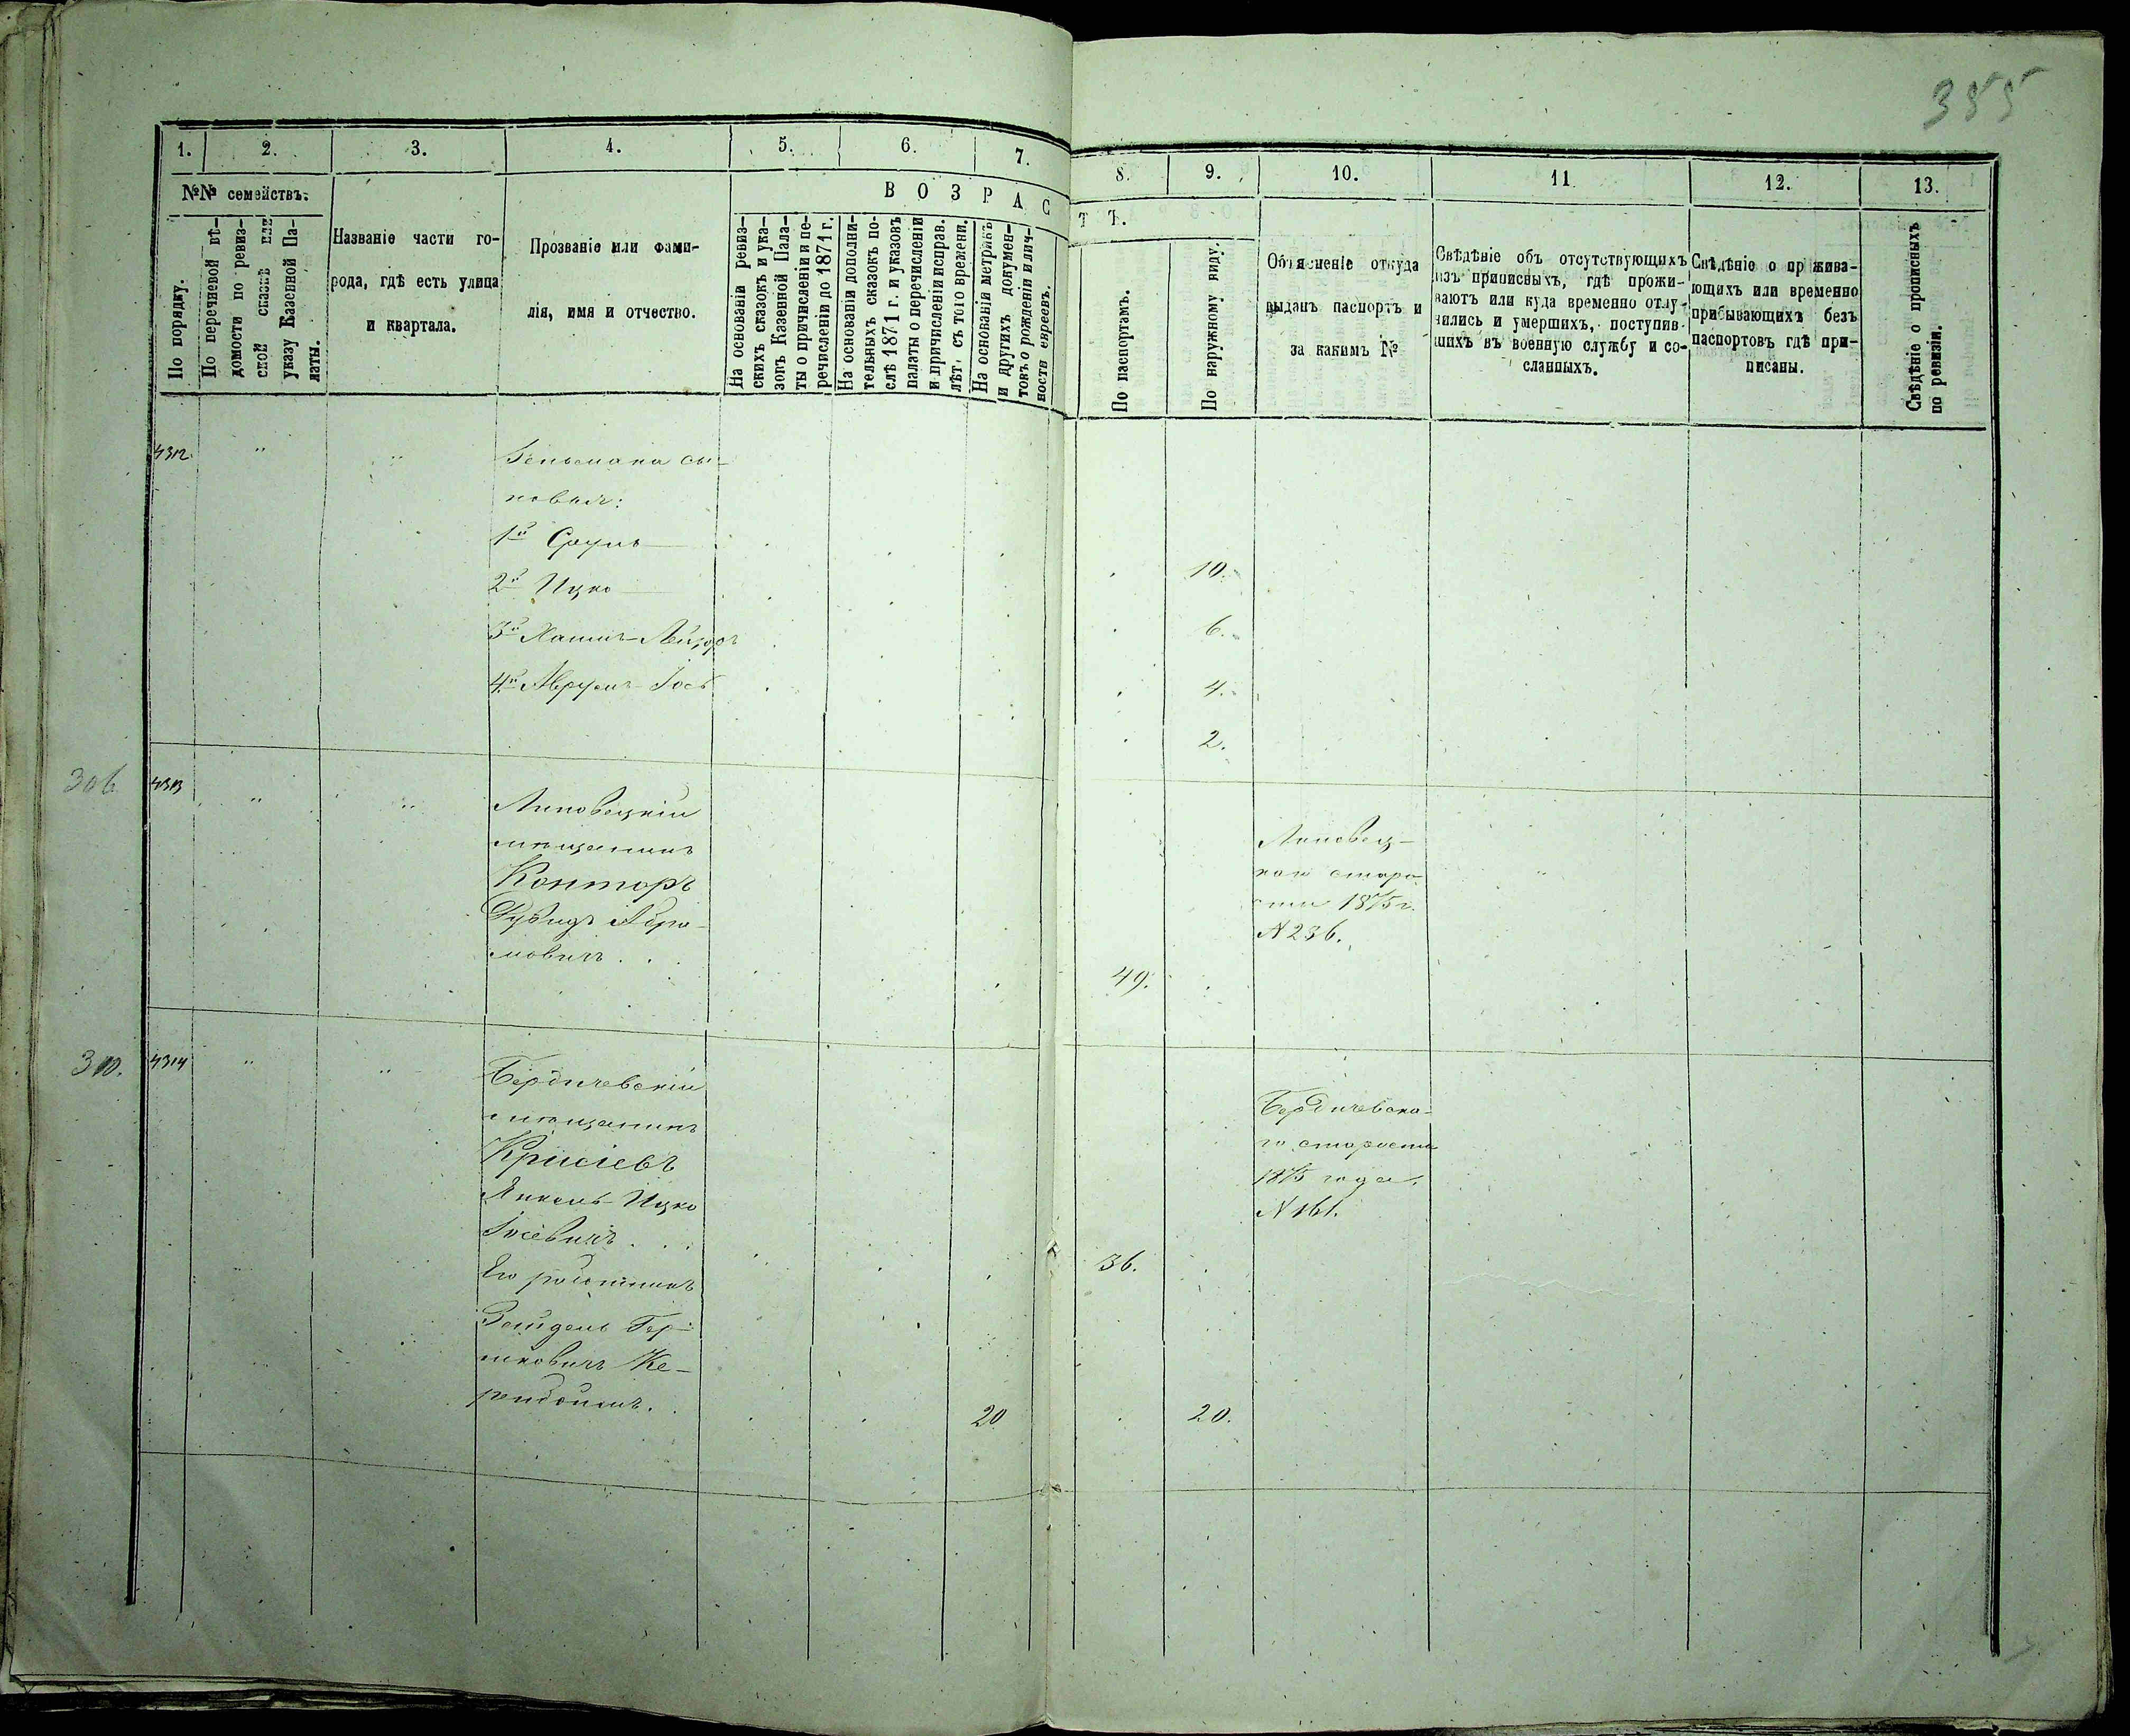 355
1.
2.
3.
4.
5.
6.
7.
8.
9.
10.
11
12.
13.
№№ семействъ.
По порядку.
По перечневой вѣ-
домости по ревиз-
ской сказкѣ или
указу Казенной Па-
латы.
Названіе части го-
рода, гдѣ есть улица
и квартала.
Прозваніе или фами-
лія, имя и отчество.
ВОЗРАС
ТЪ.
На основаніи ревиз-
скихъ сказокъ и ука-
зовъ Казенной Пала-
ты о причисленіи и пе-
речисленіи до 1871 г.
На основаніи дополни-
тельныхъ сказокъ по-
слѣ 1871 г. и указовъ
палаты о перечисленіи
и причисленіи исправ.
лѣт. съ того времени.
На основаніи метрикъ
и другихъ докумен-
товъ о рожденіи и лич-
ности евреевъ.
По паспортамъ.
По наружному виду.
Объясненіе откуда
выданъ паспортъ и
за какимъ №
Свѣдѣніе объ отсутствующихъ
изъ приписныхъ, гдѣ прожи-
ваютъ или куда временно отлу-
чились и умершихъ, поступив-
шихъ въ военную службу и со-
сланныхъ.
Свѣдѣніе о прожива-
ющихъ или временно
прибывающихъ безъ
паспортовъ гдѣ при-
писаны.
Свѣдѣніе о прописныхъ
по ревизіи.
4312
сы-
новья:
1й Сруль
10.
2й Ицко
6.
3й Хаимъ-Лейзоръ
4.
4й Аврумъ-Іось
2.
306.
4313
Липовецкій
мѣщанинъ
Конторъ
Абра-
мовичъ . .
49.
Липовец-
кой старо-
сты 1875 г.
№ 236.
310.
4314
Бердичевскій
мѣщанинъ
Янкель-Ицко
Іосевичъ . . .
36.
Бердичевска-
го старосты
1875 года,
№ 161.
Его
Зейдель Гер-
шковичъ
20
20.